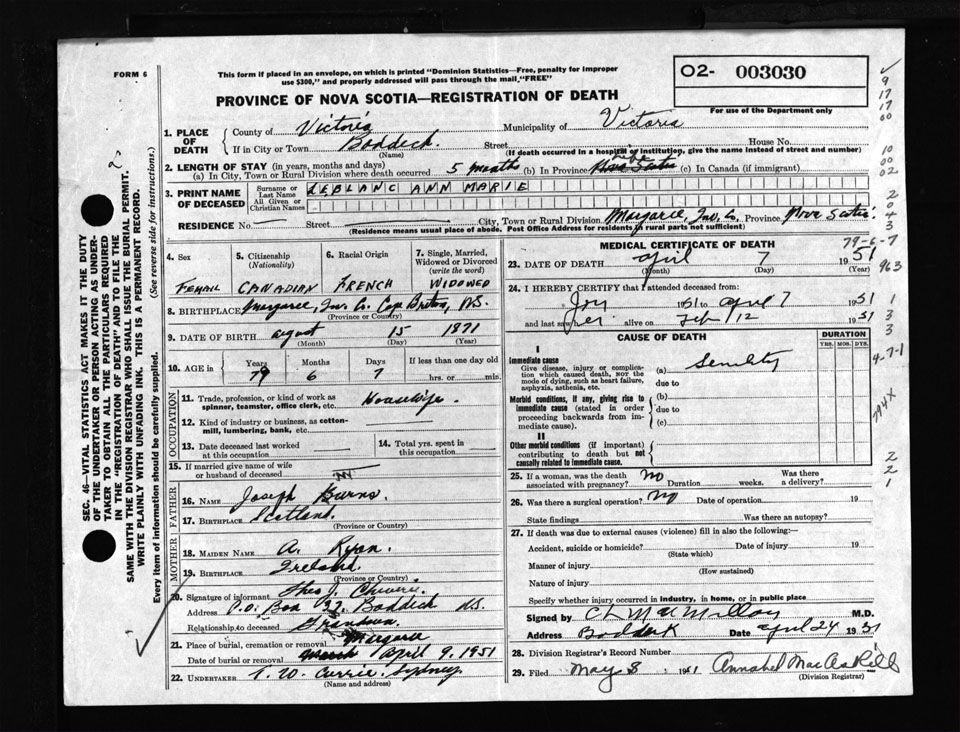 FORM 6
This form if placed in an envelope, on which is printed "Dominion Statistics—Free, penalty for improper
use $300," and properly addressed will pass through the mail, "FREE"
O2- 003030
For use of the Department only
PROVINCE OF NOVA SCOTIA—REGISTRATION OF DEATH
1. PLACE OF DEATH
County of Victoria Municipality of Victoria
If in City or Town Baddeck. Street House No.
(Name) (If death occurred in a hospital or institution, give the name instead of street and number)
2. LENGTH OF STAY (in years, months and days)
(a) In City, Town or Rural Division where death occurred 5 months (b) In Province Nova Scotia (c) In Canada (if immigrant)
3. PRINT NAME OF DECEASED
Surname or Last Name LEBLANC ANN MARIE
All Given or Christian Names
RESIDENCE No. Street City, Town or Rural Division Margaree, Inv. Co. Province Nova Scotia.
(Residence means usual place of abode. Post Office Address for residents in rural parts not sufficient)
4. Sex
FEMAIL
5. Citizenship
(Nationality)
CANADIAN
6. Racial Origin
FRENCH
7. Single, Married, Widowed or Divorced
(write the word)
WIDOWED
8. BIRTHPLACE Margaree, Inv. Co. Cape Breton, N.S.
(Province or Country)
9. DATE OF BIRTH august 15 1871
(Month) (Day) (Year)
10. AGE in
Years Months Days If less than one day old
79 6 7 hrs. or min.
OCCUPATION
11. Trade, profession, or kind of work as spinner, teamster, office clerk, etc. Housewife.
12. Kind of industry or business, as cotton-mill, lumbering, bank, etc.
13. Date deceased last worked at this occupation
14. Total yrs. spent in this occupation
15. If married give name of wife or husband of deceased
FATHER
16. NAME Joseph Burns
17. BIRTHPLACE Scotland.
(Province or Country)
MOTHER
18. MAIDEN NAME A. Ryan.
19. BIRTHPLACE Ireland.
(Province or Country)
20. Signature of informant Theo J. Chiverie
Address P.O. Box 32 Baddeck N.S.
Relationship to deceased Grandson.
21. Place of burial, cremation or removal Margaree
Date of burial or removal April 9, 1951
22. UNDERTAKER T. W. Currie. Sydney
(Name and address)
MEDICAL CERTIFICATE OF DEATH
79-6-7
23. DATE OF DEATH april 7 1951
(Month) (Day) (Year)
24. I HEREBY CERTIFY that I attended deceased from:
Jan 1951 to april 7 1951
and last saw her alive on Feb 12 1951
CAUSE OF DEATH
DURATION
YRS. MOS. DYS.
I
Immediate cause
Give disease, injury or complication which caused death, not the mode of dying, such as heart failure, asphyxia, asthenia, etc.
(a) Senility
due to
Morbid conditions, if any, giving rise to immediate cause (stated in order proceeding backwards from immediate cause).
(b)
due to
(c)
II
Other morbid conditions (if important) contributing to death but not causally related to immediate cause.
25. If a woman, was the death associated with pregnancy? No Duration weeks. Was there a delivery?
26. Was there a surgical operation? No Date of operation 19
State findings Was there an autopsy?
27. If death was due to external causes (violence) fill in also the following:
Accident, suicide or homicide? Date of injury 19
(State which)
Manner of injury
(How sustained)
Nature of injury
Specify whether injury occurred in industry, in home, or in public place
Signed by C L MacMillan M.D.
Address Baddeck Date april 24 1951
28. Division Registrar's Record Number
29. Filed May 8 1951 Annabel MacAskill
(Division Registrar)
SEC. 46—VITAL STATISTICS ACT MAKES IT THE DUTY
OF THE UNDERTAKER OR PERSON ACTING AS UNDER-
TAKER TO OBTAIN ALL THE PARTICULARS REQUIRED
IN THE "REGISTRATION OF DEATH" AND TO FILE THE
SAME WITH THE DIVISION REGISTRAR WHO SHALL ISSUE THE BURIAL PERMIT.
WRITE PLAINLY WITH UNFADING INK. THIS IS A PERMANENT RECORD.
Every item of information should be carefully supplied. (See reverse side for instructions.)
9
17
17
00
10
00
02
2
0
4
3
963
1
3
3
4-7-1
794X
2
2
1